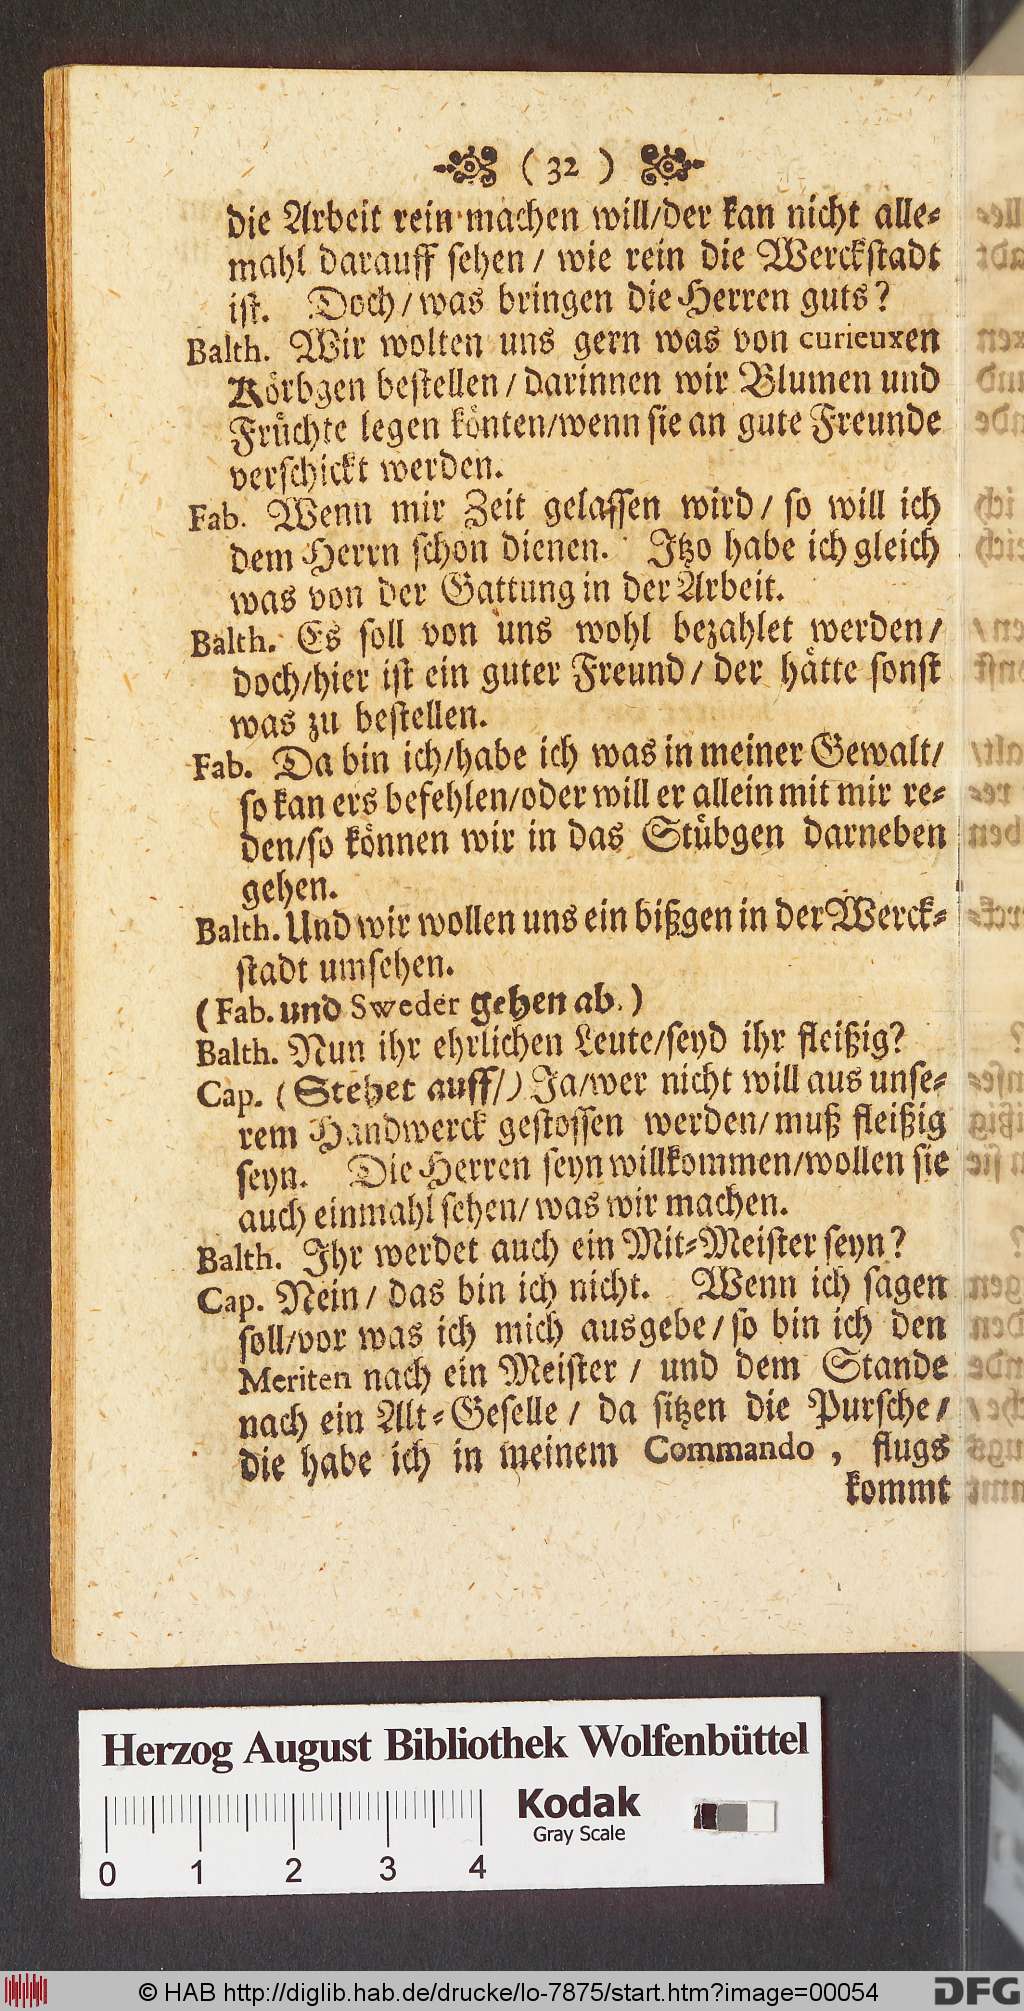 ( 32 )
die Arbeit rein machen will/der kan nicht alle-
mahl darauff sehen / wie rein die Werckstadt
ist. Doch / was bringen die Herren guts?
Balth. Wir wolten uns gern was von curieuxen
Körbgen bestellen / darinnen wir Blumen und
Früchte legen könten/wenn sie an gute Freunde
verschickt werden.
Fab. Wenn mir Zeit gelassen wird / so will ich
dem Herrn schon dienen. Itzo habe ich gleich
was von der Gattung in der Arbeit.
Balth. Es soll von uns wohl bezahlet werden/
doch/hier ist ein guter Freund / der hätte sonst
was zu bestellen.
Fab. Da bin ich/habe ich was in meiner Gewalt/
so kan ers befehlen/oder will er allein mit mir re-
den/so können wir in das Stübgen darneben
gehen.
Balth. Und wir wollen uns ein bißgen in der Werck-
stadt umsehen.
(Fab. und Sweder gehen ab.)
Balth. Nun ihr ehrlichen Leute/seyd ihr fleißig?
Cap. (Stehet auff/) Ja/wer nicht will aus unse-
rem Handwerck gestossen werden/ muß fleißig
seyn. Die Herren seyn willkommen/wollen sie
auch einmahl sehen/ was wir machen.
Balth. Ihr werdet auch ein Mit-Meister seyn?
Cap. Nein / das bin ich nicht. Wenn ich sagen
soll/vor was ich mich ausgebe / so bin ich den
Meriten nach ein Meister / und dem Stande
nach ein Alt-Geselle / da sitzen die Pursche /
die habe ich in meinem Commando , flugs
kommt
Herzog August Bibliothek Wolfenbüttel
Kodak
Gray Scale
0 1 2 3 4
© HAB http://diglib.hab.de/drucke/lo-7875/start.htm?image=00054
DFG